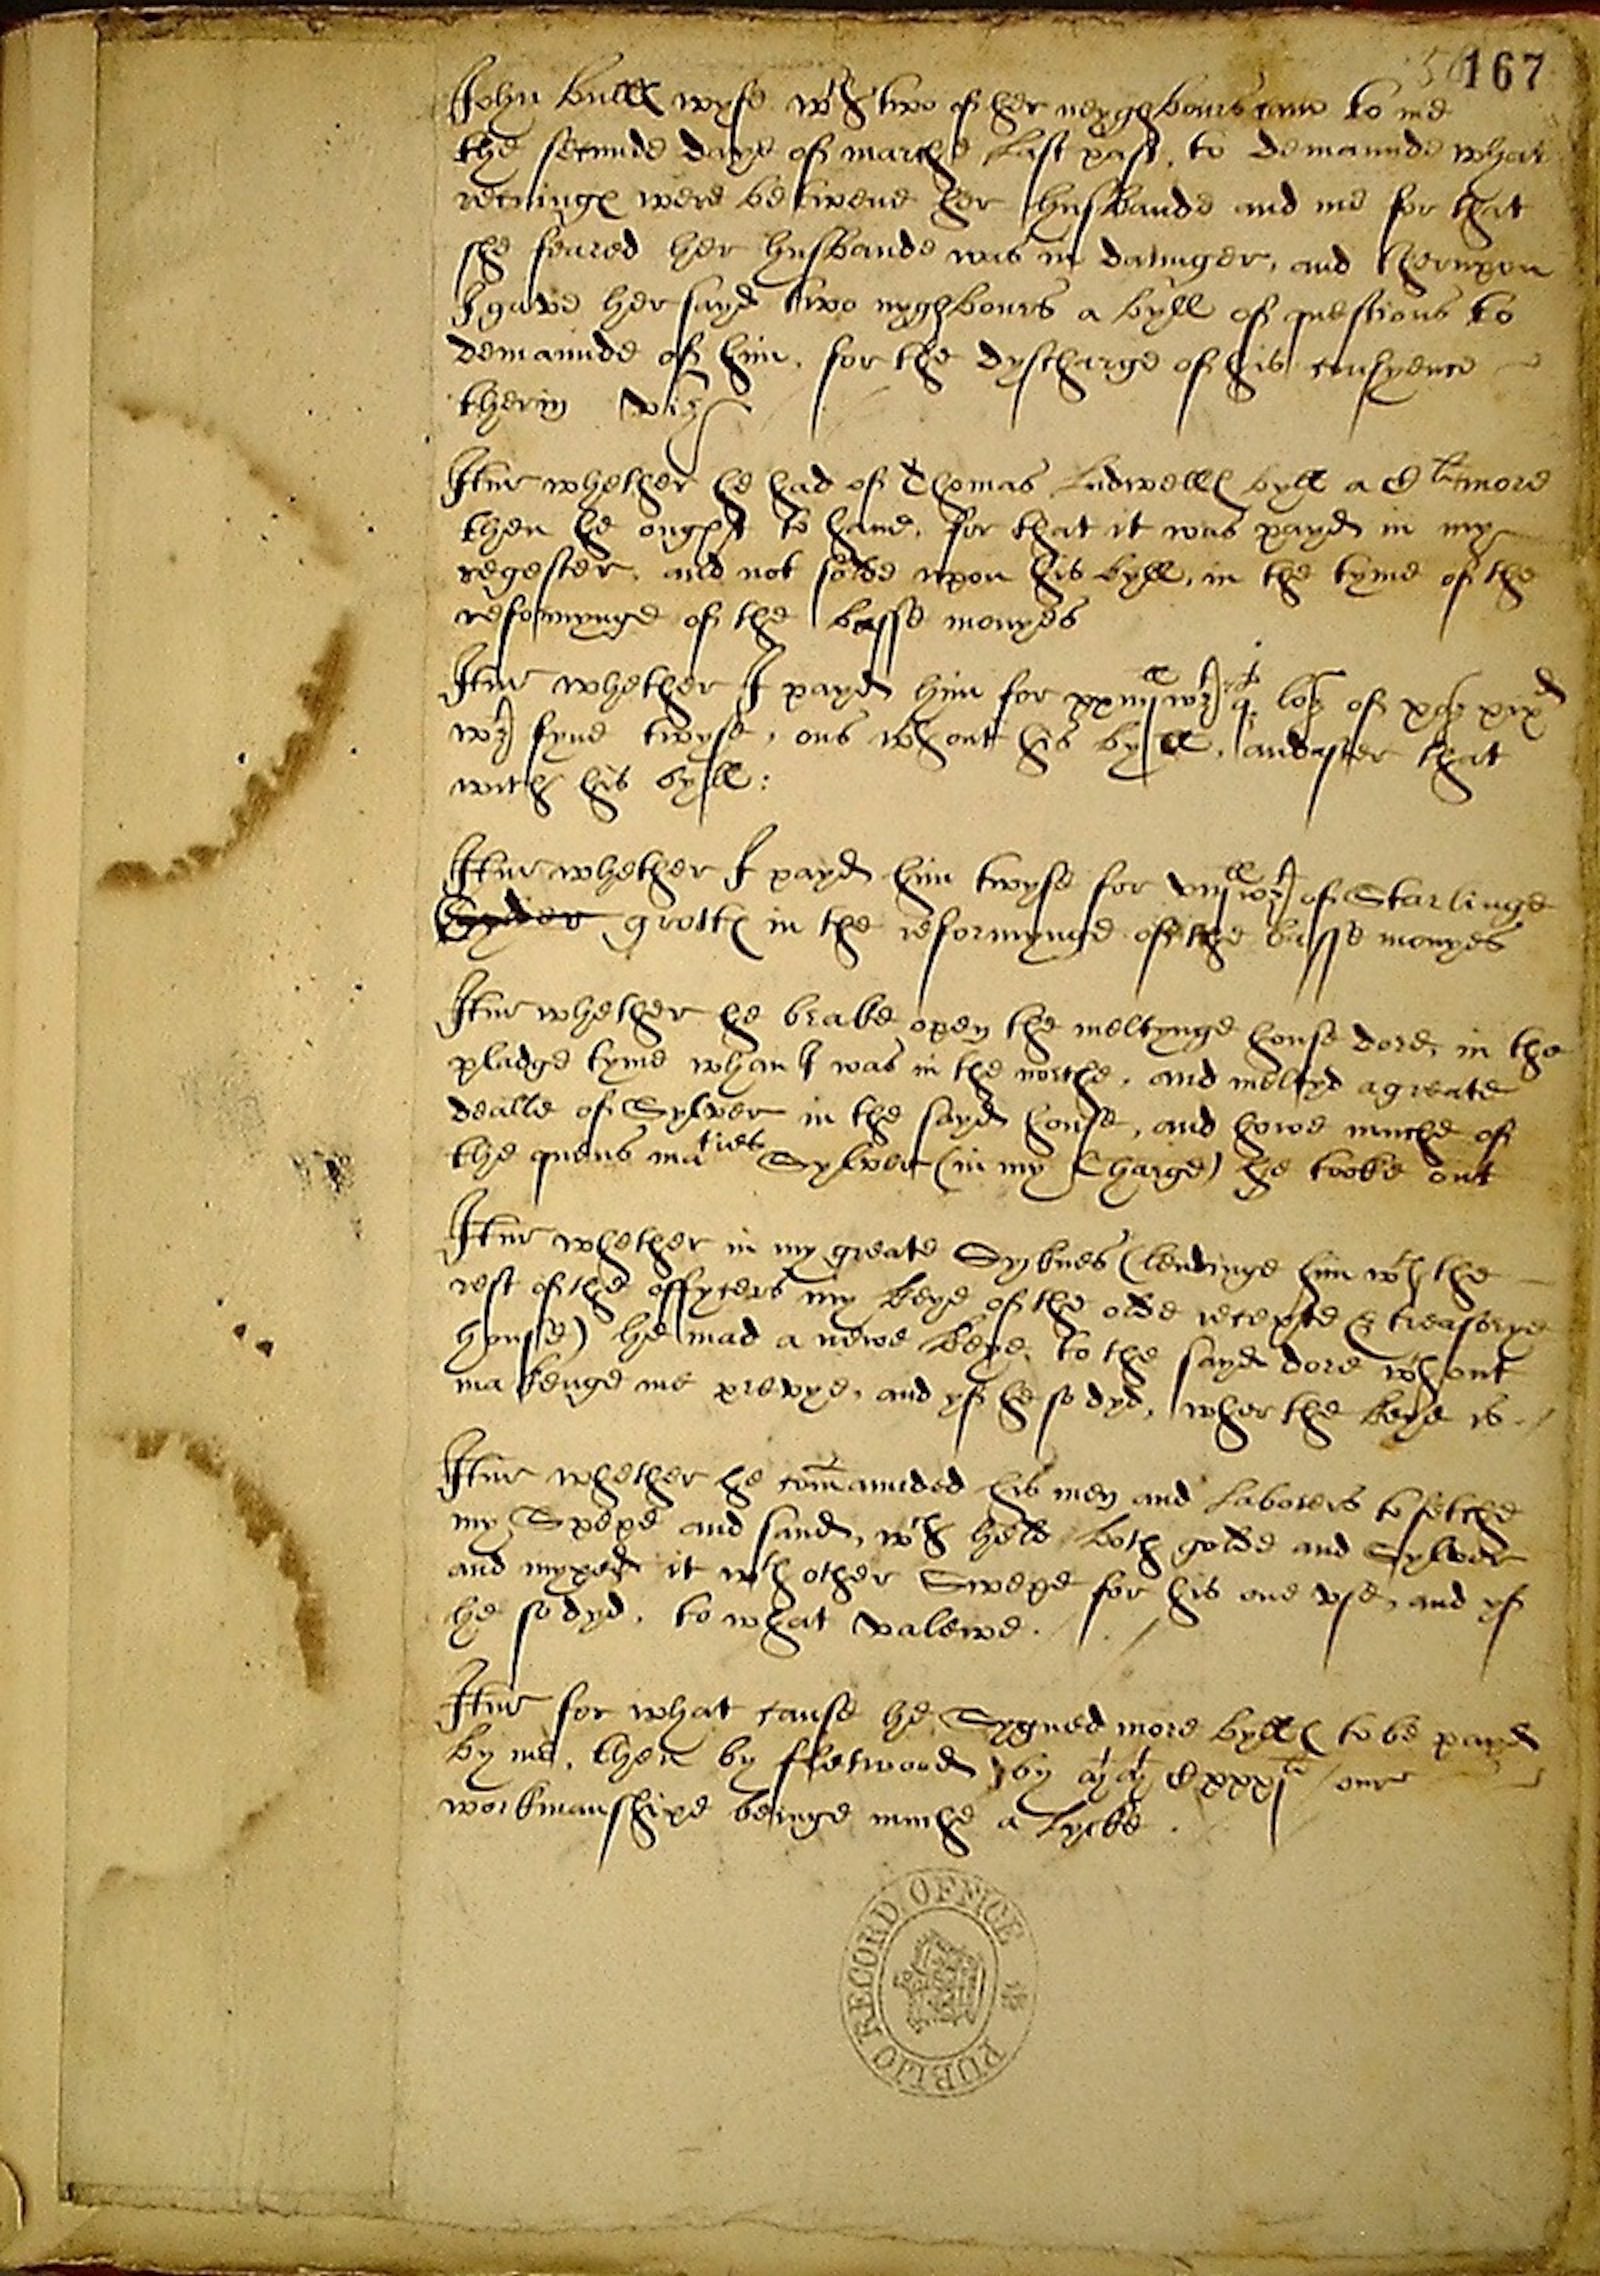 167
John Bulls wyfe wth two of her neyghbours cam to me
the secunde daye of marche last past, to demaunde what
recnings were betwene her husbande and me for that
she feared her husbande was in daunger, and therupon
I gave her sayd two nyghbours a byll of questions to
demaunde of him, for the dyscharge of his consyence
therin viz
Itm whether he had of Thomas Ludwells byll a C li more
then he ought to have, for that it was payd in my
regester, and not sette upon his byll, in the tyme of the
refformynge of the basse monyes
Itm whether I payd him for xxiiij ll wt of
wt fyne twyse, ons wthout his byll, and after that
with his byll:
Itm whether I payd him twyse for viij ll wt of Starlinge
grotts in the reformynge of the basse monyes
Itm whether he brake open the meltynge house dore, in the
pladge tyme whan I was in the northe, and meltyd a greate
dealle of Sylver in the sayd house, and howe muche of
the quens maties Sylver (in my Charge) he tooke out
Itm whether in my greate Syknes (lendinge him wth the
rest of the offycers my keye of the olde recepte & treasorye
house) he mad a newe keye, to the sayd dore wthout
makenge me prevye, and yf he so dyd, wher the keye is
Itm whether he commaunded his men and laborers to fetche
my Swepe and sand, wch held both golde and Sylver
and myxed it wth other Swepe for his one use, and yf
he so dyd, to what valewe.
Itm for what cause he Sygned more bylls to be payd
by me, then by Fletwood by CXXXI li our
workmanshipe beinge muche a lycke.
PUBLIC RECORD OFFICE